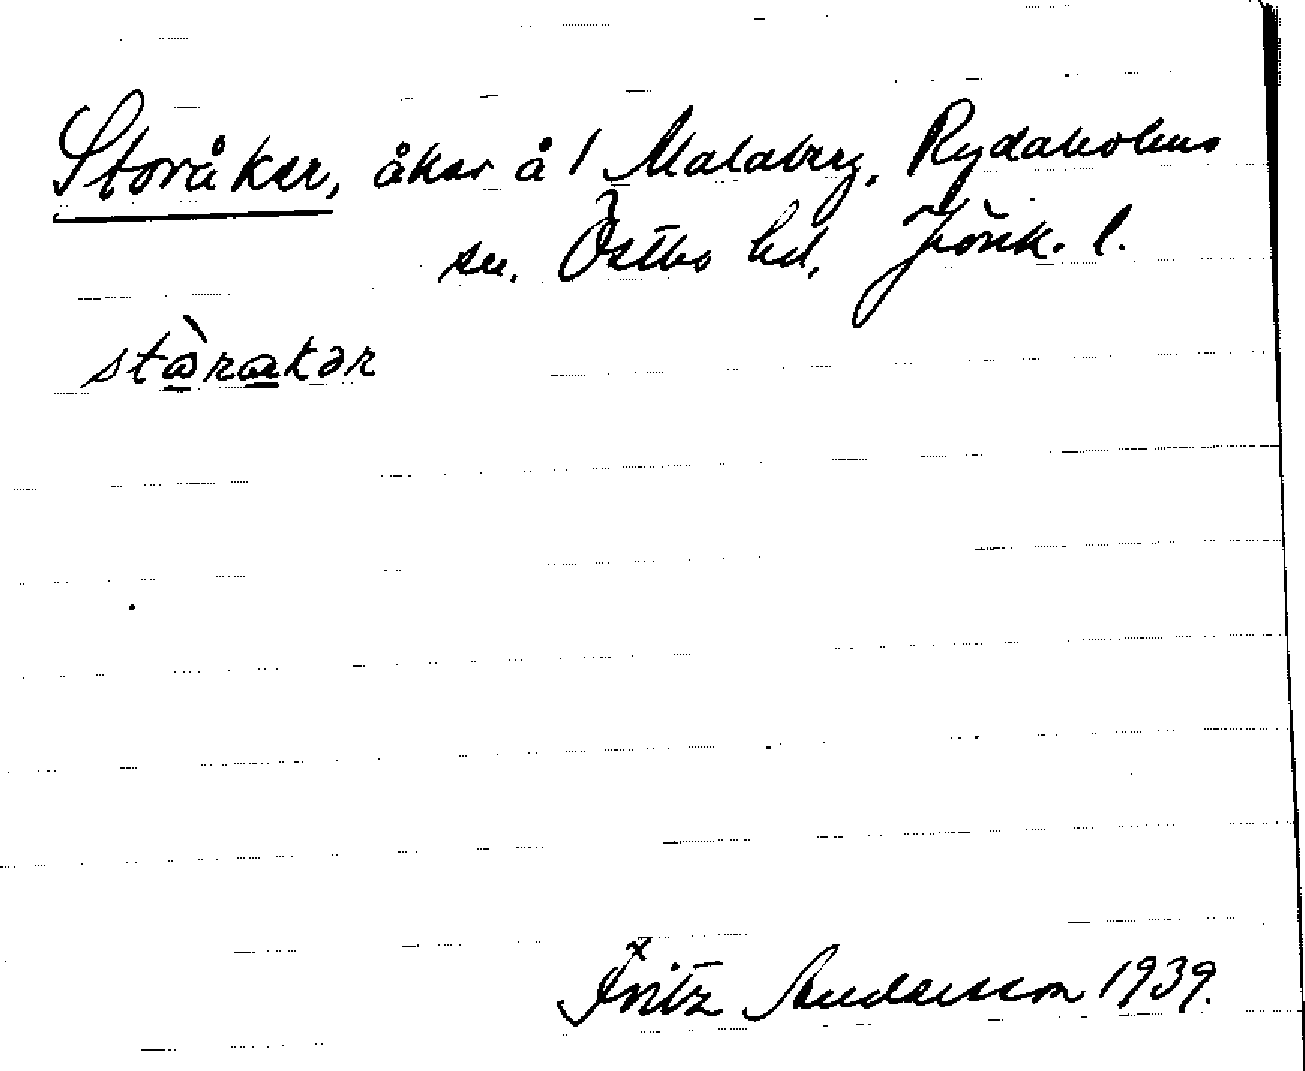 Storåker, åker å 1 Malaberg, Rydaholms
sn. Östbo hd, Jönk. l.
Fritz Andersson 1939.